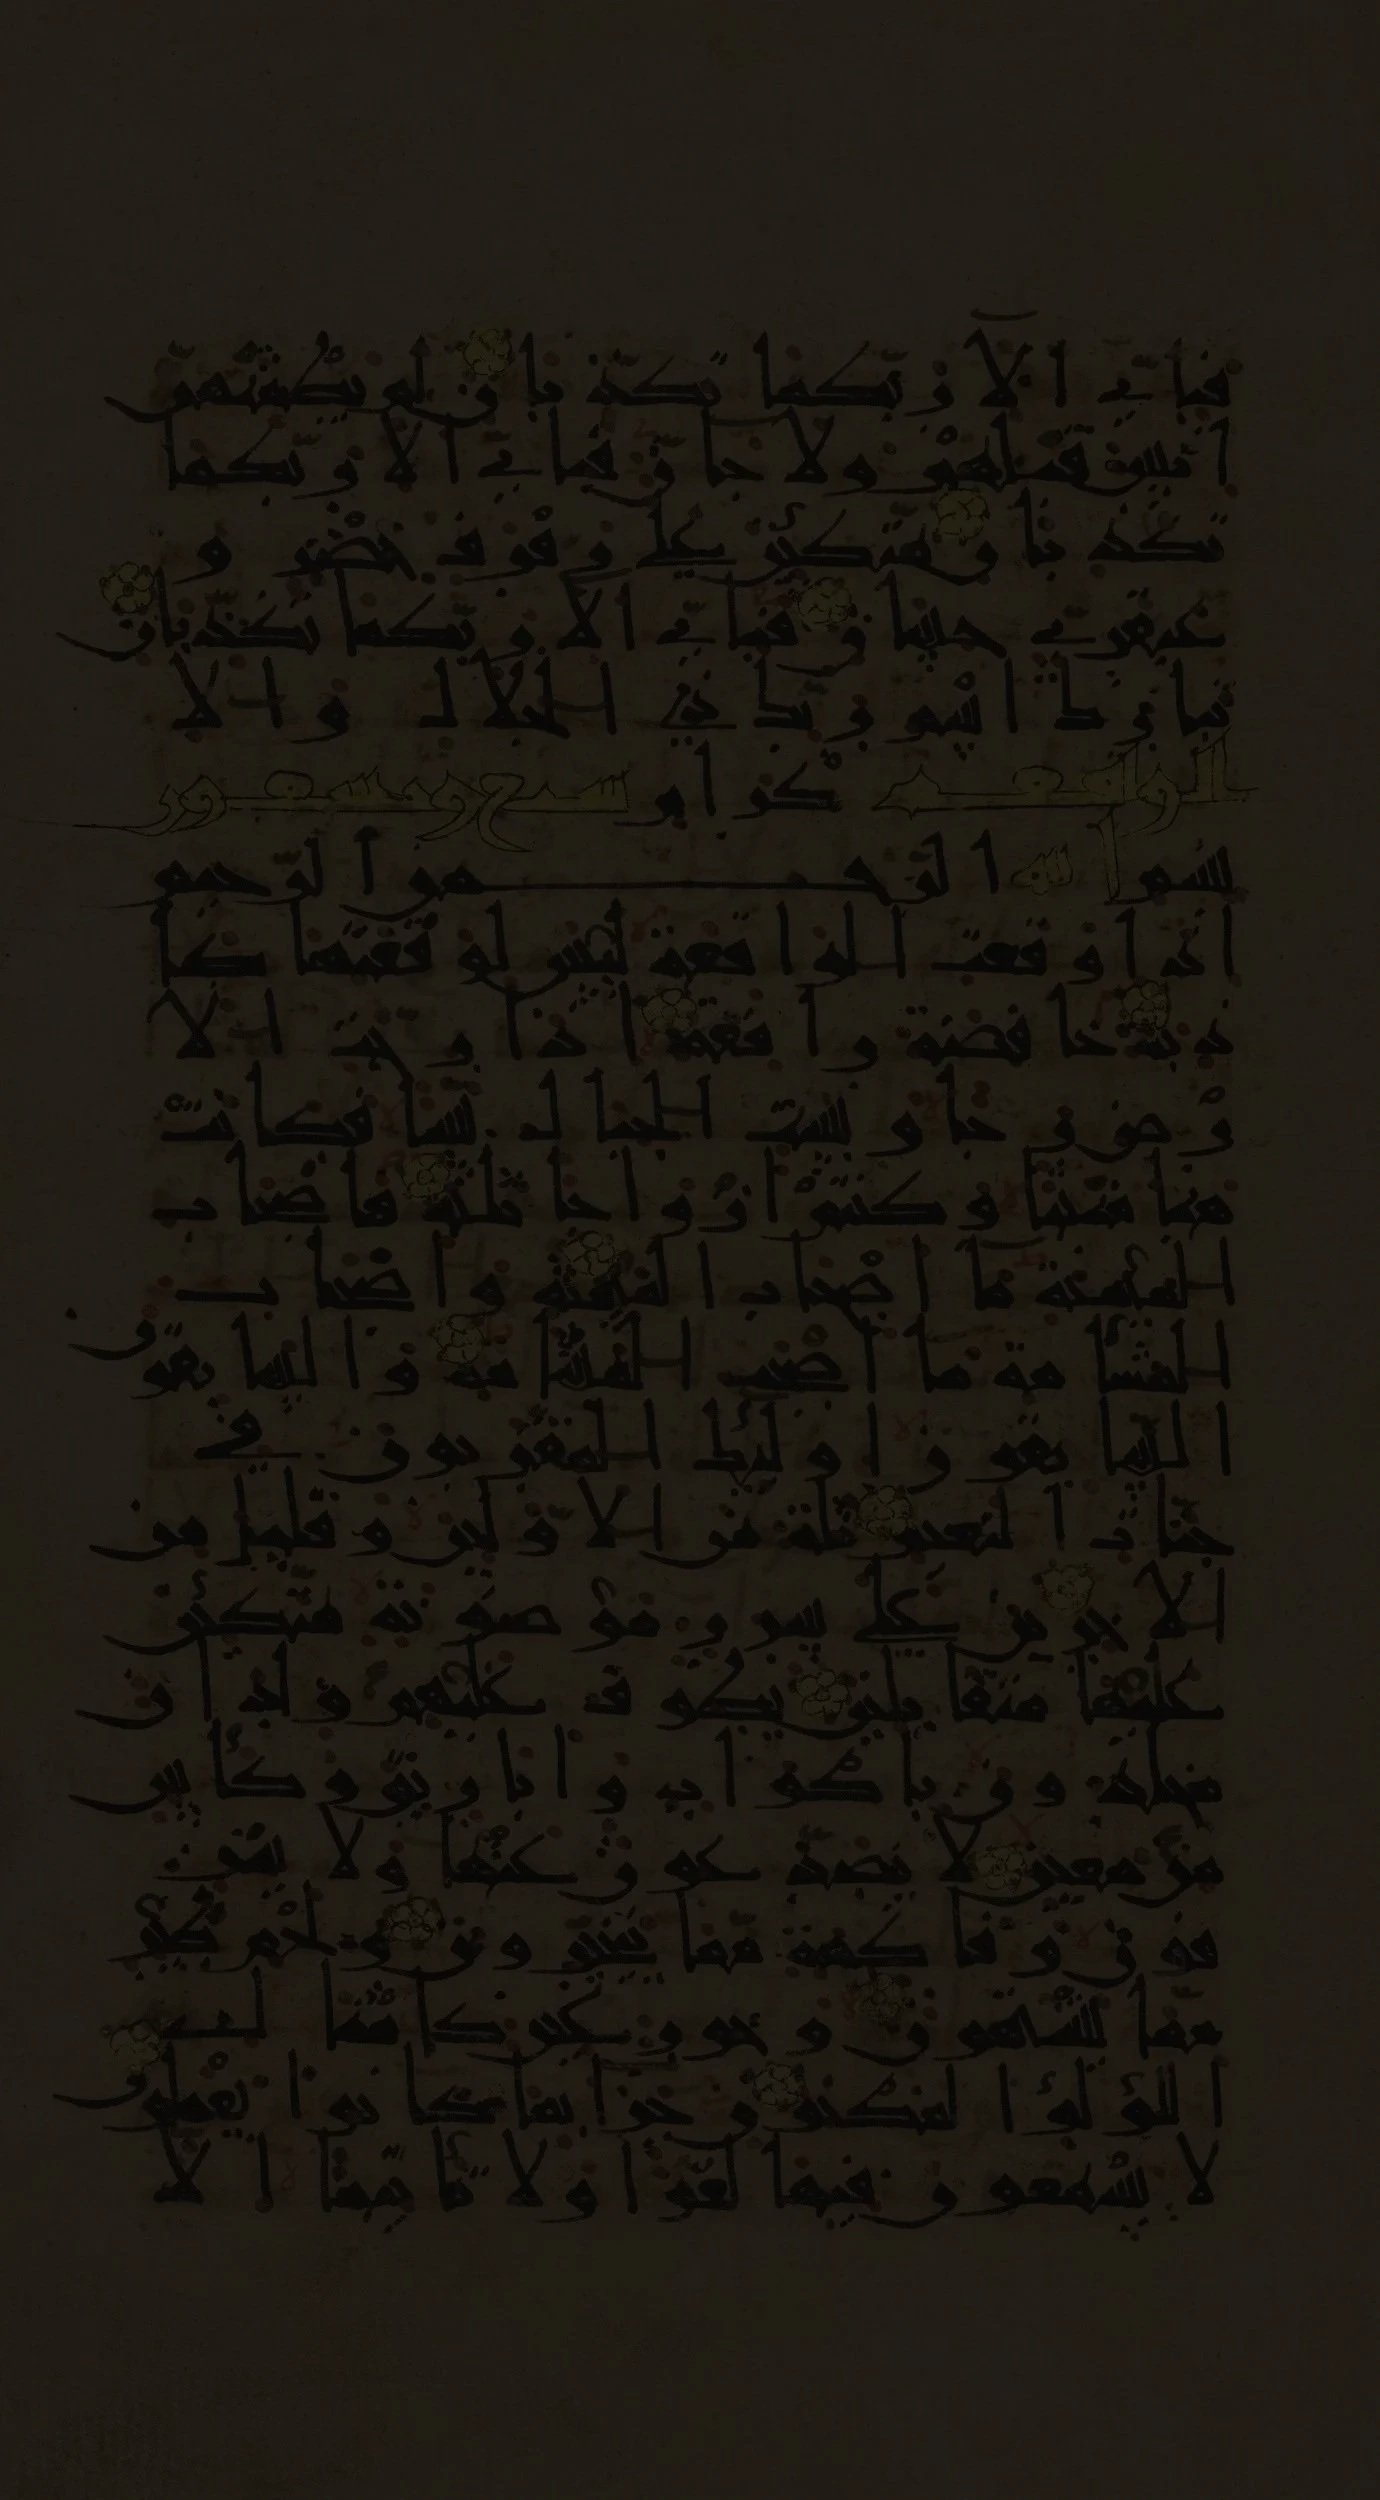 فبأي الآ ربكما تكذبان لم يطمثهن
انس قبلهم ولا جان فبأي الا ربكما
تكذبان متكئن على رفرف خضر و
عبقري حسان فبأي الا ربكما تكذبان
تبارك اسم ربك ذي الجلال والا
الواقعة كرام سبع وتسعون
بسم الله الرحمن الرحيم
اذا وقعت الواقعة ليس لوقعتها كا
ذبة خافضة رافعة اذا رجت الا
رض رجا وبست الجبال بسا فكانت
هبا منبثا وكنتم ازواجا ثلثة فاصحاب
الميمنة ما اصحاب الميمنة واصحاب
المشأمة ما اصحب المشأمة والسابقون
السابقون اولئك المقربون في
جنات النعيم ثلة من الاولين وقليل من
الاخرين على سرر موضونة متكئن
عليها متقابلين يطوف عليهم ولدان
مخلدون بأكواب واباريق وكأس
من معين لا يصدعون عنها ولا ينز
فون وفاكهة مما يتخيرون ولحم طير
مما يشتهون وحور عين كامثال
اللؤلؤ المكنون جزا بما كانوا يعملون
لا يسمعون فيها لغوا ولا تأثيما الا